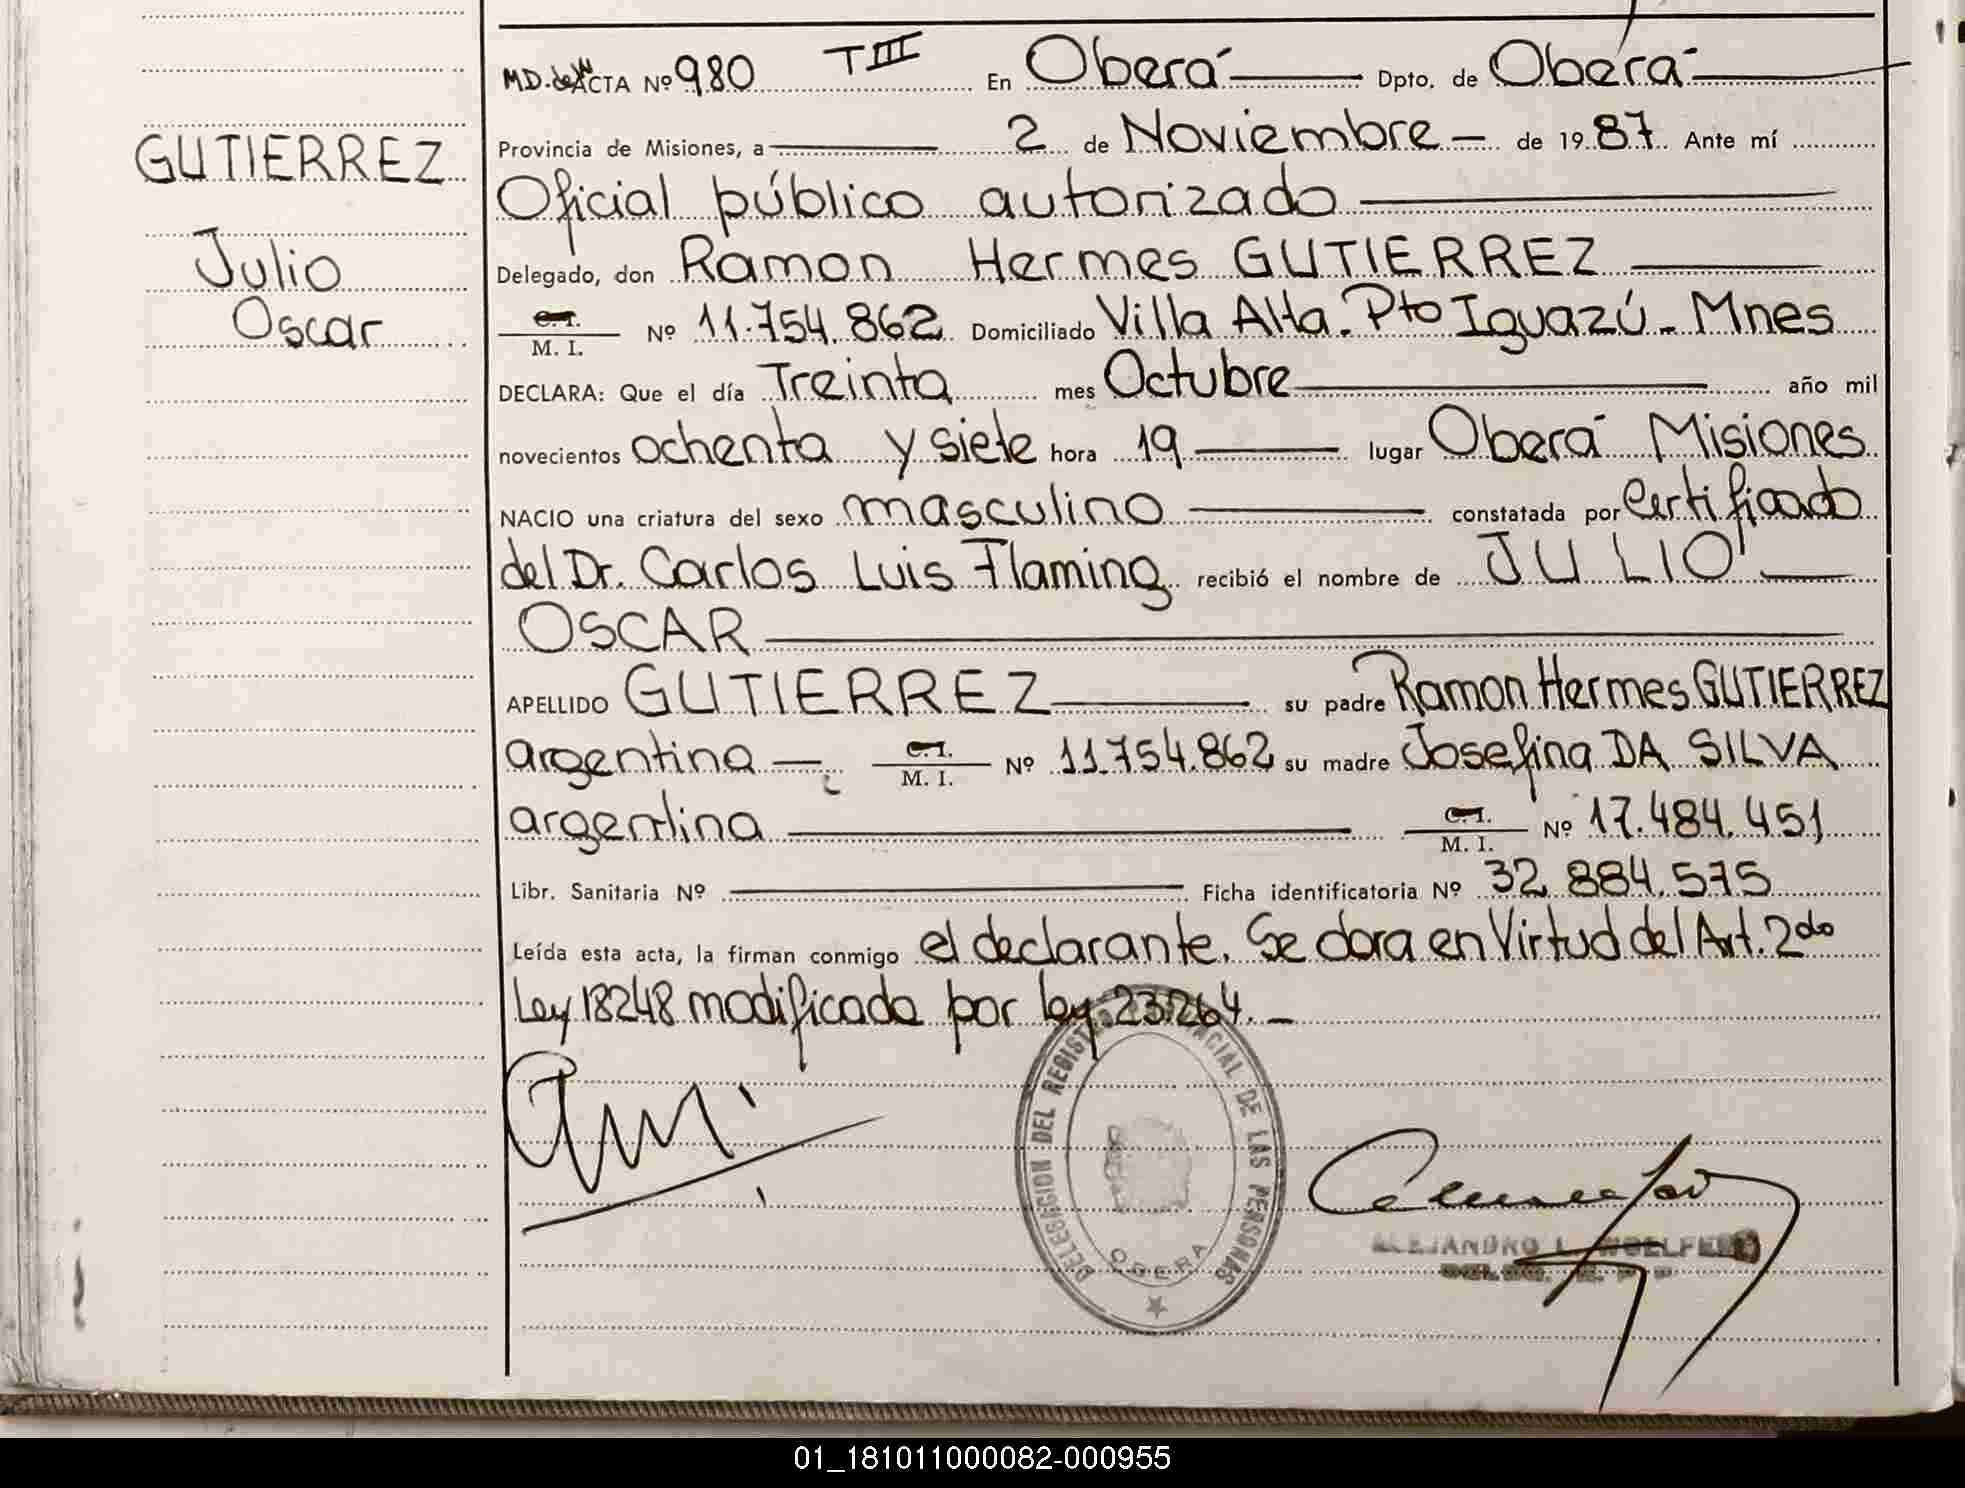 GUTIERREZ
Julio
Oscar
ACTA Nº 980 T III En Oberá Dpto. de Oberá
Provincia de Misiones, a 2 de Noviembre de 1987. Ante mí
Oficial público autorizado
Delegado, don Ramon Hermes GUTIERREZ
C.I. / M. I. Nº 11.754.862 Domiciliado Villa Alta. Pto Iguazú - Mnes
DECLARA: Que el día Treinta mes Octubre año mil
novecientos ochenta y siete hora 19 lugar Oberá Misiones
NACIO una criatura del sexo masculino constatada por Certificado
del Dr. Carlos Luis Flaming recibió el nombre de JULIO
OSCAR
APELLIDO GUTIERREZ su padre Ramon Hermes GUTIERREZ
argentina C.I. / M. I. Nº 11.754.862 su madre Josefina DA SILVA
argentina C.I. / M. I. Nº 17.484.451
Libr. Sanitaria Nº Ficha identificatoria Nº 32.884.575
Leída esta acta, la firman conmigo el declarante. Se dara en Virtud del Art. 2do
Ley 18248 modificada por ley 23.264.-
DELEGACION DEL REGISTRO PROVINCIAL DE LAS PERSONAS
OBERA
ALEJANDRO L.
01_181011000082-000955